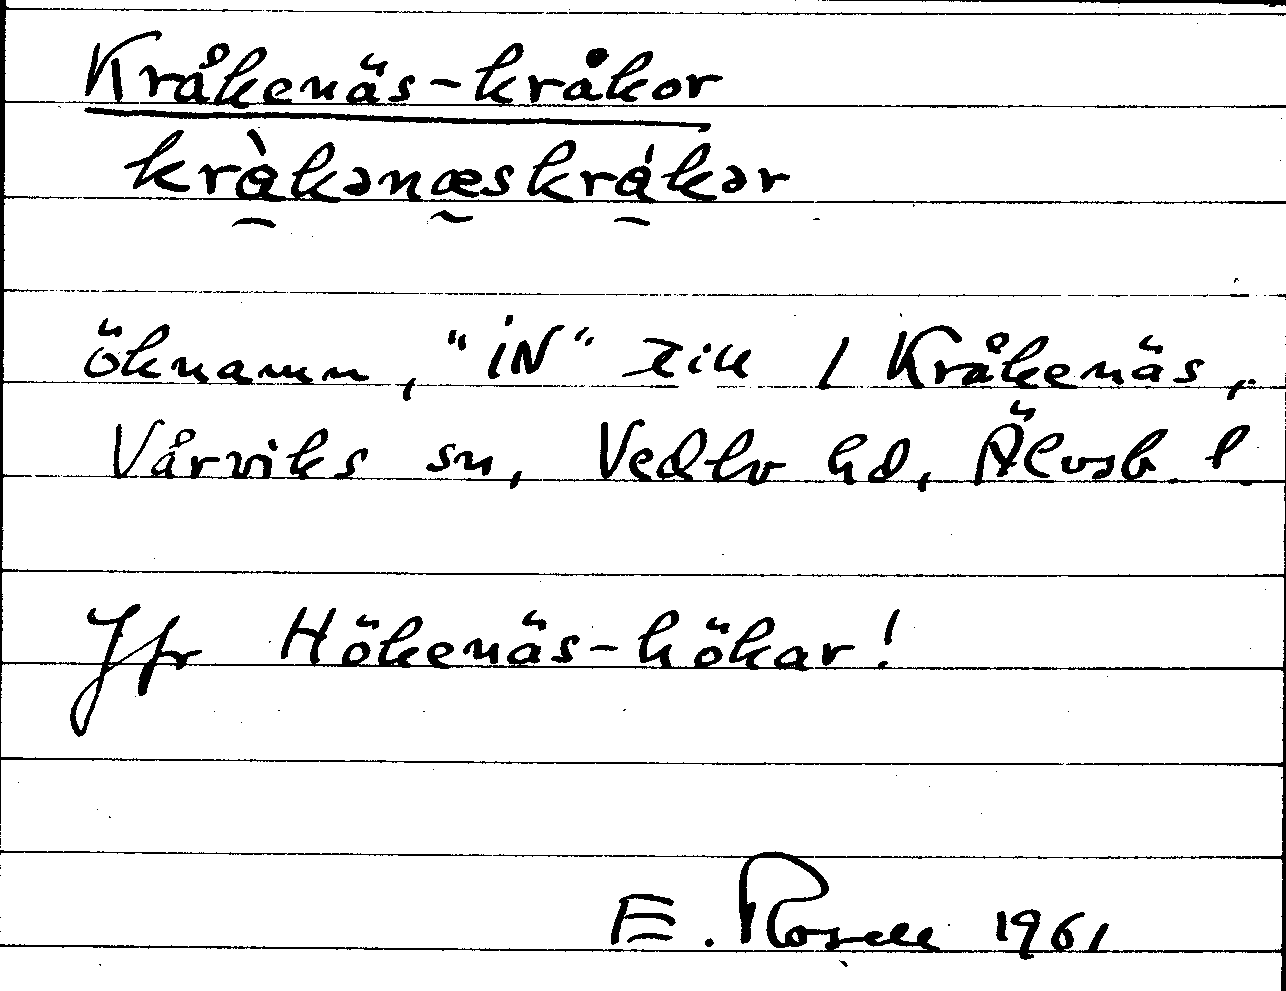 Kråkenäs-kråkor
krὰ̯kənæ̰skrά̯kər
öknamn, "iN" till / Kråkenäs,
Vårviks sn, Vedbo hd, Älvsb. l.
Jfr Hökenäs-hökar!
E. Rosell 1961